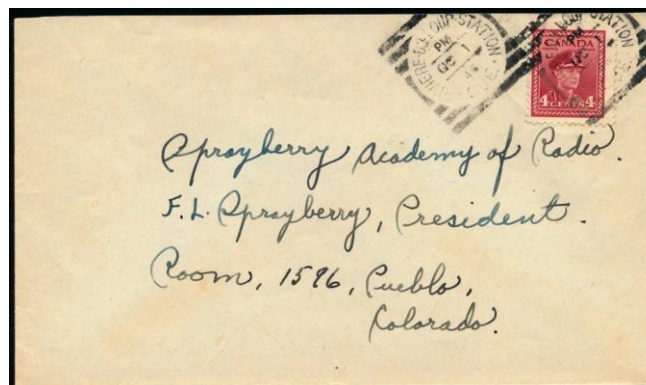 RIVIERE-DU-LOUP-STATION
PM
CANADA
4 CENTS 4
Sprayberry Academy of Radio.
F. L. Sprayberry, President.
Room, 1596, Pueblo,
Colorado.